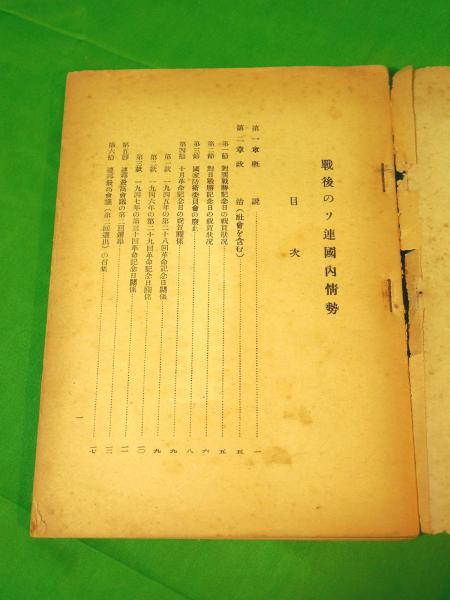 戰後のソ連國內情勢
目次
第一章 概說……一
第二章 政治（社會を含む）……五
第一節 對獨戰勝記念日の祝賀狀況……五
第二節 對日戰勝記念日の祝賀狀況……六
第三節 國家防衛委員會の廢止……八
第四節 十月革命記念日の祝賀關係……九
第一款 一九四五年の第二十八回革命記念日關係……九
第二款 一九四六年の第二十九回革命記念日關係……九
第三款 一九四七年の第三十回革命記念日關係……一〇
第五節 連邦最高會議の第二回選擧……一一
第六節 連邦最高會議（第二回選出）の召集……一七
一